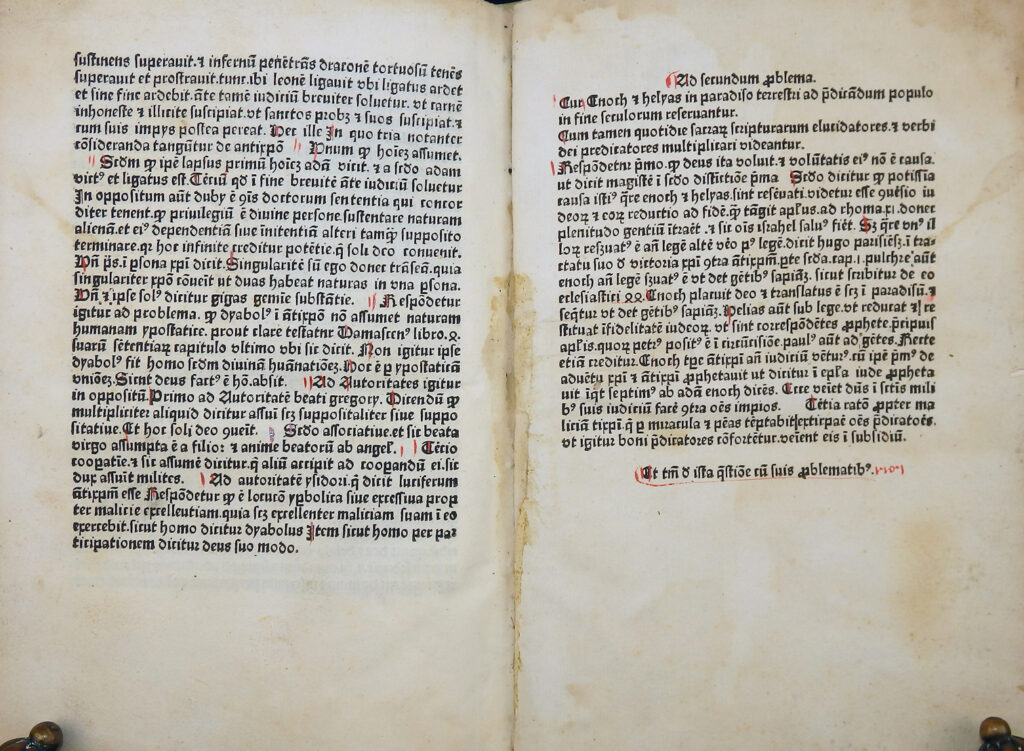 sustinens superauit.⁊ infernū penetrās draconē tortuosū tenēs
superauit et prostrauit.tunc.ibi leonē ligauit vbi ligatus ardet
et sine fine ardebit.āte tamē iudiciū breuiter soluetur. vt carnē
inhoneste ⁊ illicite suscipiat.vt sanctos probꝫ ⁊ suos suscipiat.⁊
cum suis impijs postea pereat. Per ille In quo tria notanter
cōsideranda tangūtur de antixp̄o Vnum qꝫ hoīeꝫ assumet.
Scd̄m qꝫ ip̄e lapsus primū hoīeꝫ adam vicit. ⁊ a scd̄o adam
vict⁹ et ligatus est.Terciū qd̄ ī fine breuitē āte iudiciū soluetur
In oppositum aūt duby ē ꝯīs doctorum sententia qui concor
diter tenent.qꝫ priuilegiū ē diuine persone.sustentare naturam
alienā.et ei⁹ dependentiā siue īnitentiā alteri tamqꝫ supposito
terminare.qꝛ hoc infinite creditur potētie.q̄ soli deo conuenit.
Vn̄ ps̄.ī ꝑsona xp̄i dicit.Singularitē sū ego donec trāseā.quia
singulariter xp̄o cōueīt vt duas habeat naturas in vna ꝑsona.
Vn̄ ⁊ ipse sol⁹ dicitur gigas gemīe substātie. Respōdetur
igitur ad problema. qꝫ dyabol⁹ ī antixp̄m nō assumet naturam
humanam ypostatice. prout clare testatur Damascen⁹ libro.2.
suarū sētentiaꝝ capitulo vltimo vbi sic dicit. Non igitur ipse
dyabol⁹ fit homo scd̄m diuinā huānatiōeꝫ. Hoc ē ꝑ ypostaticā
vniōeꝫ. Sicut deus fact⁹ ē hō.absit. Ad Autoritates igitur
in oppositū. Primo ad Autoritatē beati gregory. Dicendū qꝫ
multipliciter aliquid dicitur assūi scꝫ suppositaliter siue suppo
sitatiue.Et hoc soli deo ꝯueīt. Scd̄o associatiue.et sic beata
virgo assumpta ē a filio: ⁊ anime beatorū ab angel̄. Tercio
coopatīe.⁊ sic assumē dicitur.q̄ aliū accipit ad coopandū ei.sic
dux assūit milites. Ad autoritatē ysidori.q̄ dicit luciferum
antixp̄m esse Respōdetur qꝫ ē locutō yꝑbolica siue excessiua prop
ter malicie excellentiam.quia scꝫ excellenter maliciam suam ī eo
exercebit.sicut homo dicitur dyabolus Item sicut homo per par
ticipationem dicitur deus suo modo.
Ad secundum ꝓblema.
Cur Enoch ⁊ helyas in paradiso terrestri ad p̄dicādum populo
in fine seculorum reseruantur.
Cum tamen quotidie sacraꝝ scripturarum elucidatores.⁊ verbi
dei predicatores multiplicari videantur.
Respōdetur p̄mo.qꝫ deus ita voluit.⁊ volūtatis ei⁹ nō ē causa.
ut dicit magistē ī scd̄o distīctiōe p̄ma Scd̄o dicitur qꝫ potissīa
causa isti⁹ qͣre enoch ⁊ helyas.sint resēuati.videtur esse ꝯuersio iu
deoꝝ.⁊ eoꝝ reductio ad fidē.qꝫ tāgit ap̄lus.ad rhoma.xi.donec
plenitudo gentiū ītraēt .⁊ sic oīs israhel salu⁹ fiēt. Sꝫ qͣre vn⁹ il
loꝝ resꝫuat⁹ ē añ legē altē vēo p⁹ legē.dicit hugo parisiēꝫ.ī tra-
ctatu suo d̄ victoria xp̄i ꝯtra antixp̄m.pte scd̄a.cap.i.pulchre aūt
enoch añ legē sꝫuat⁹ ē vt det gētib⁹ sapiāꝫ. sicut scribitur de eo
ecclesiastici 44.Enoch placuit deo ⁊ translatus ē scꝫ ī paradisū.⁊
seq̄tur vt det gētib⁹ sapiāꝫ. Helias aūt sub lege.vt reducat ⁊ re
stituat īfidelitatē iudeoꝝ. vt sint correspōdētes ꝓphete.p̄ripuis
ap̄lis.quoꝝ petr⁹ posit⁹ ē ī circūcisiōe.paul⁹ aūt ad gētes.Recte
etiā creditur.Enoch tꝑe ātixp̄i añ iudiciū vētur⁹.cū ip̄e p̄m⁹ de
aduētu xp̄i ⁊ ātixp̄i ꝓphetauit ut dicitur ī ep̄la iude ꝓpheta
uit īqt septim⁹ ab adā enoch dicēs. Ecce veīet dn̄s ī scīs mili
b⁹ suis iudiciū facē ꝯtra oēs impios. Tētia ratō ꝓpter ma
liciā tixp̄i.q̄ ꝑ miracula ⁊ pēas tēptabit extirpaē oēs p̄dicatoēs.
vt igitur boni p̄dicatores cōfortētur.veīent eis ī subsidiū.
Et tm̄ d̄ ista q̄stiōe cū suis ꝓblematib⁹.